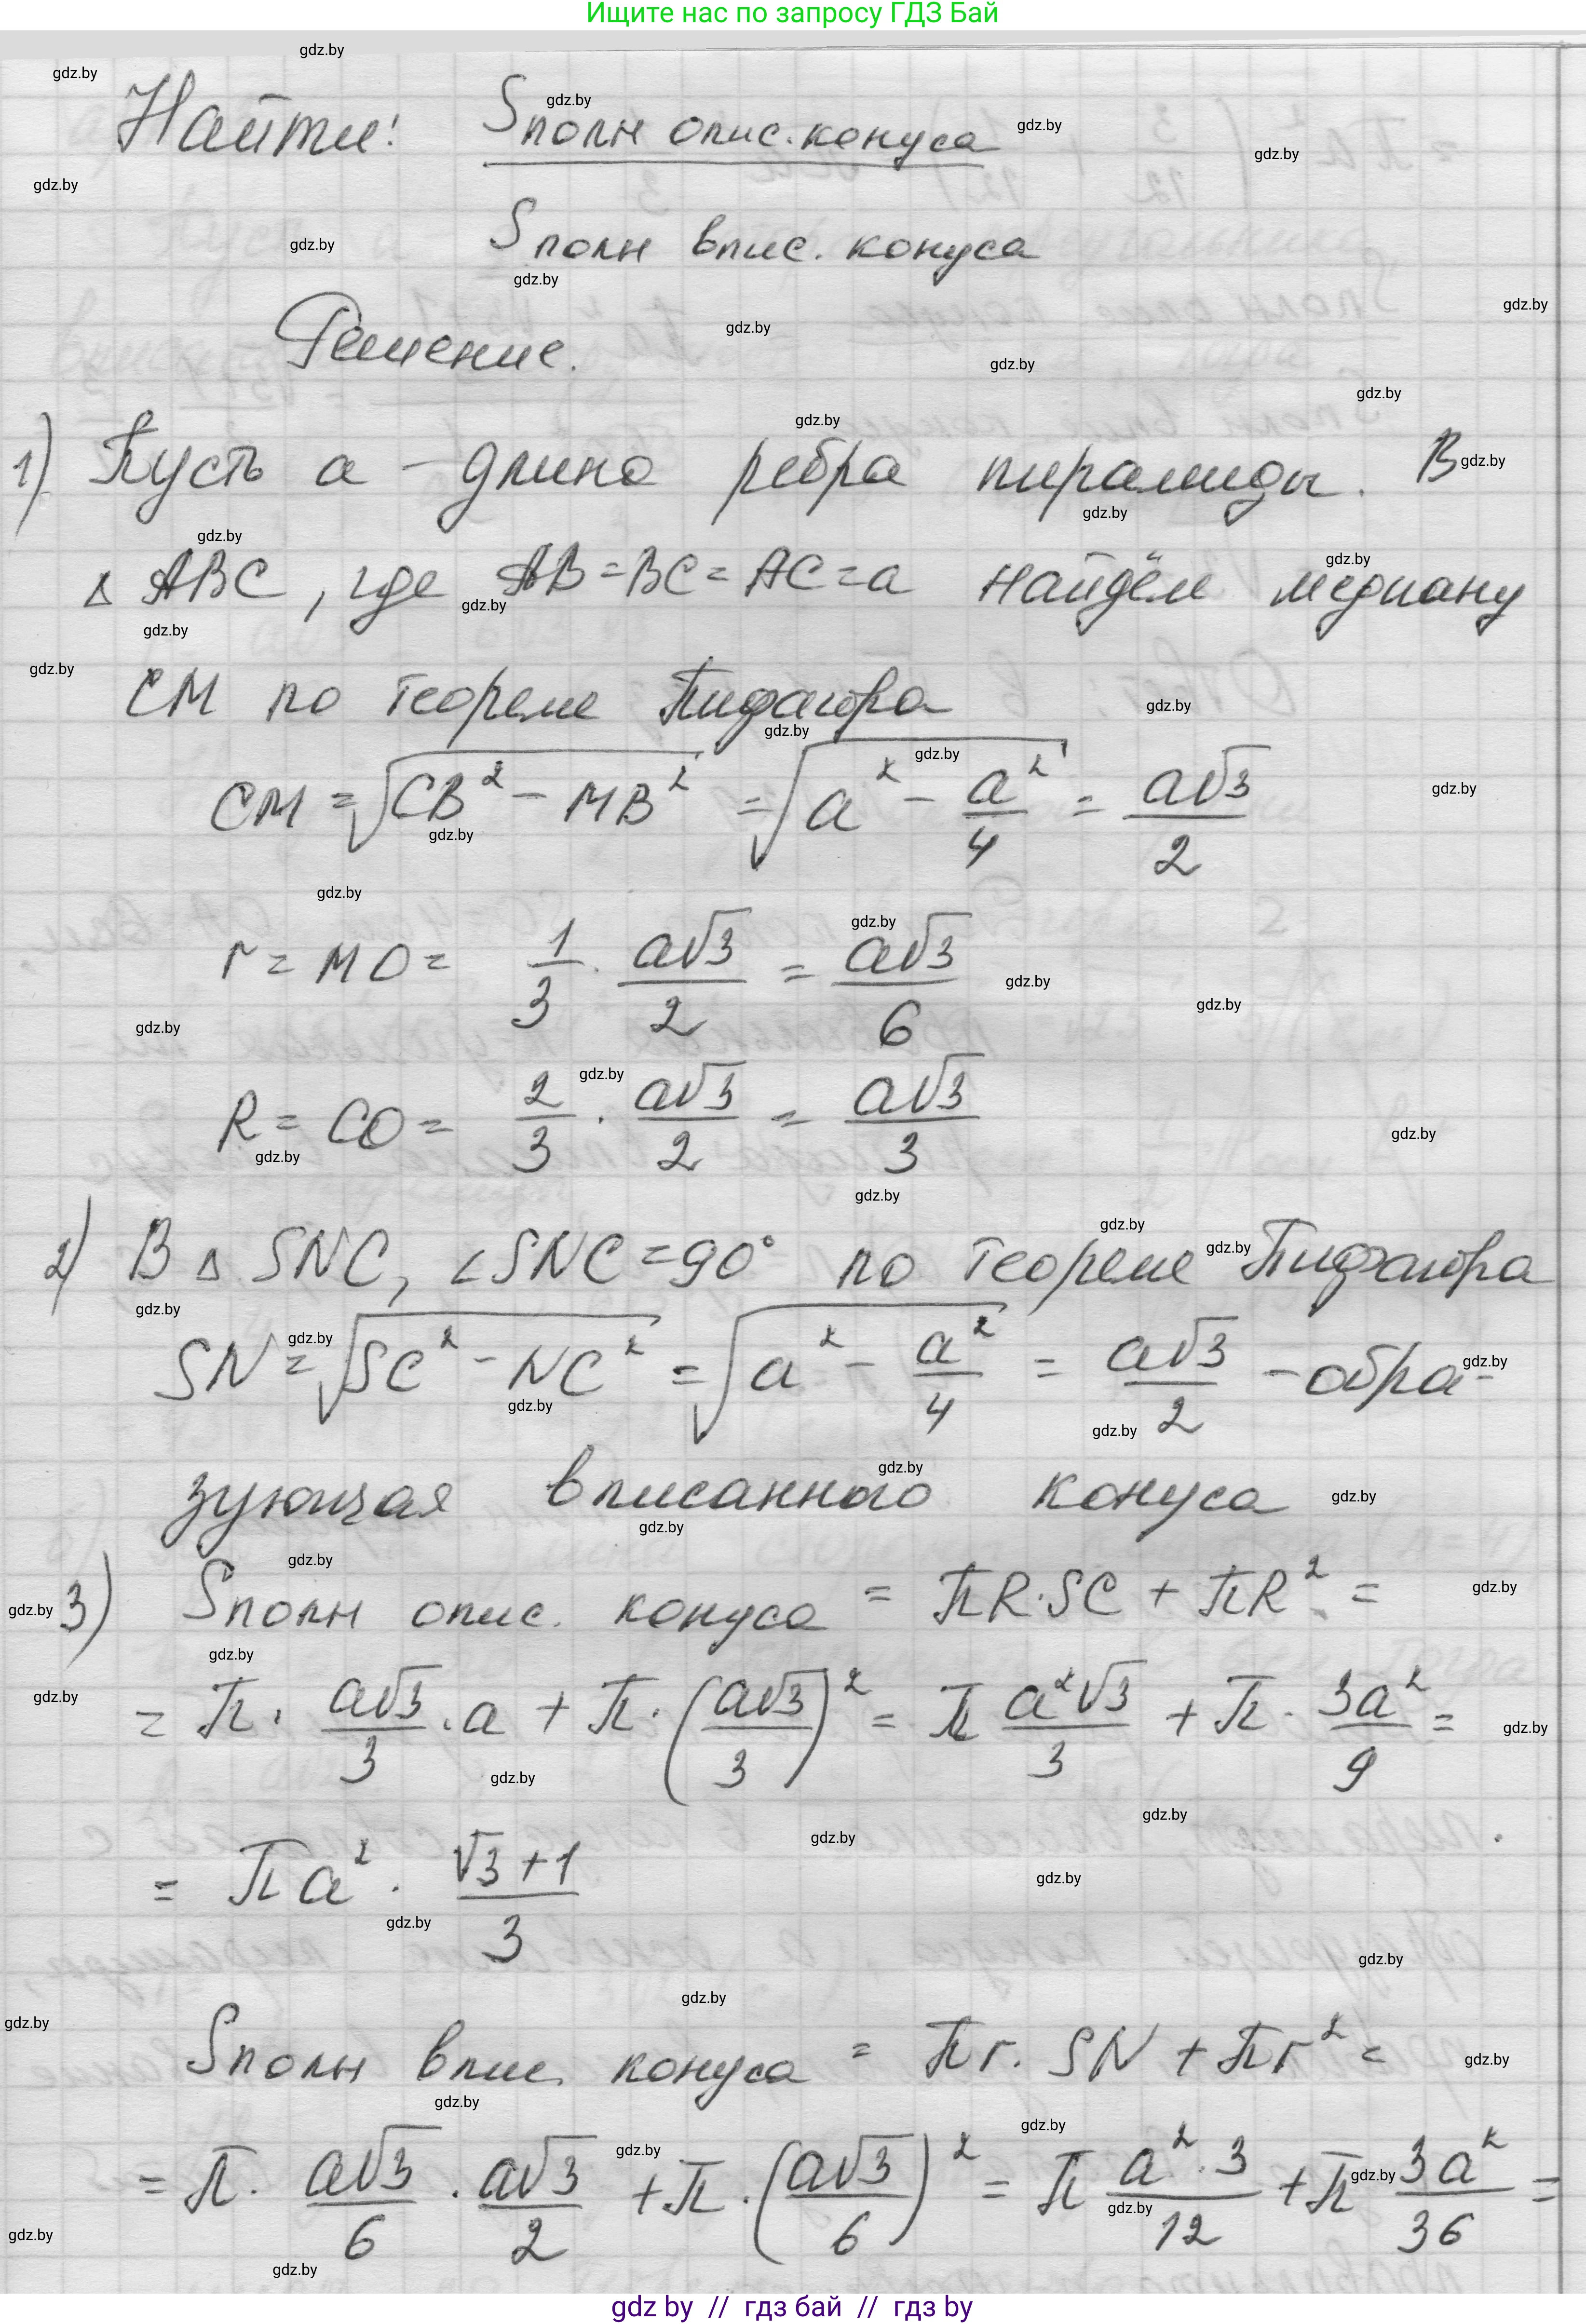 Ищите нас по запросу ГДЗ Бай
Найти: Sполн опис. конуса
Sполн впис. конуса
Решение.
1) Пусть a – длина ребра пирамиды. В
△ ABC, где AB = BC = AC = a найдём медиану
CM по теореме Пифагора
CM = √(CB² − MB²) = √(a² − a²/4) = a√3/2
r = MO = 1/3 · a√3/2 = a√3/6
R = CO = 2/3 · a√3/2 = a√3/3
2) В △ SNC, ∠SNC = 90° по теореме Пифагора
SN = √(SC² − NC²) = √(a² − a²/4) = a√3/2 – обра-
зующая вписанного конуса
3) Sполн опис. конуса = πR·SC + πR² =
= π · a√3/3 · a + π · (a√3/3)² = π a²√3/3 + π · 3a²/9 =
= πa² · (√3+1)/3
Sполн впис. конуса = πr · SN + πr² =
= π · a√3/6 · a√3/2 + π · (a√3/6)² = π a²·3/12 + π 3a²/36 =
gdz by // гдз бай // гдз by